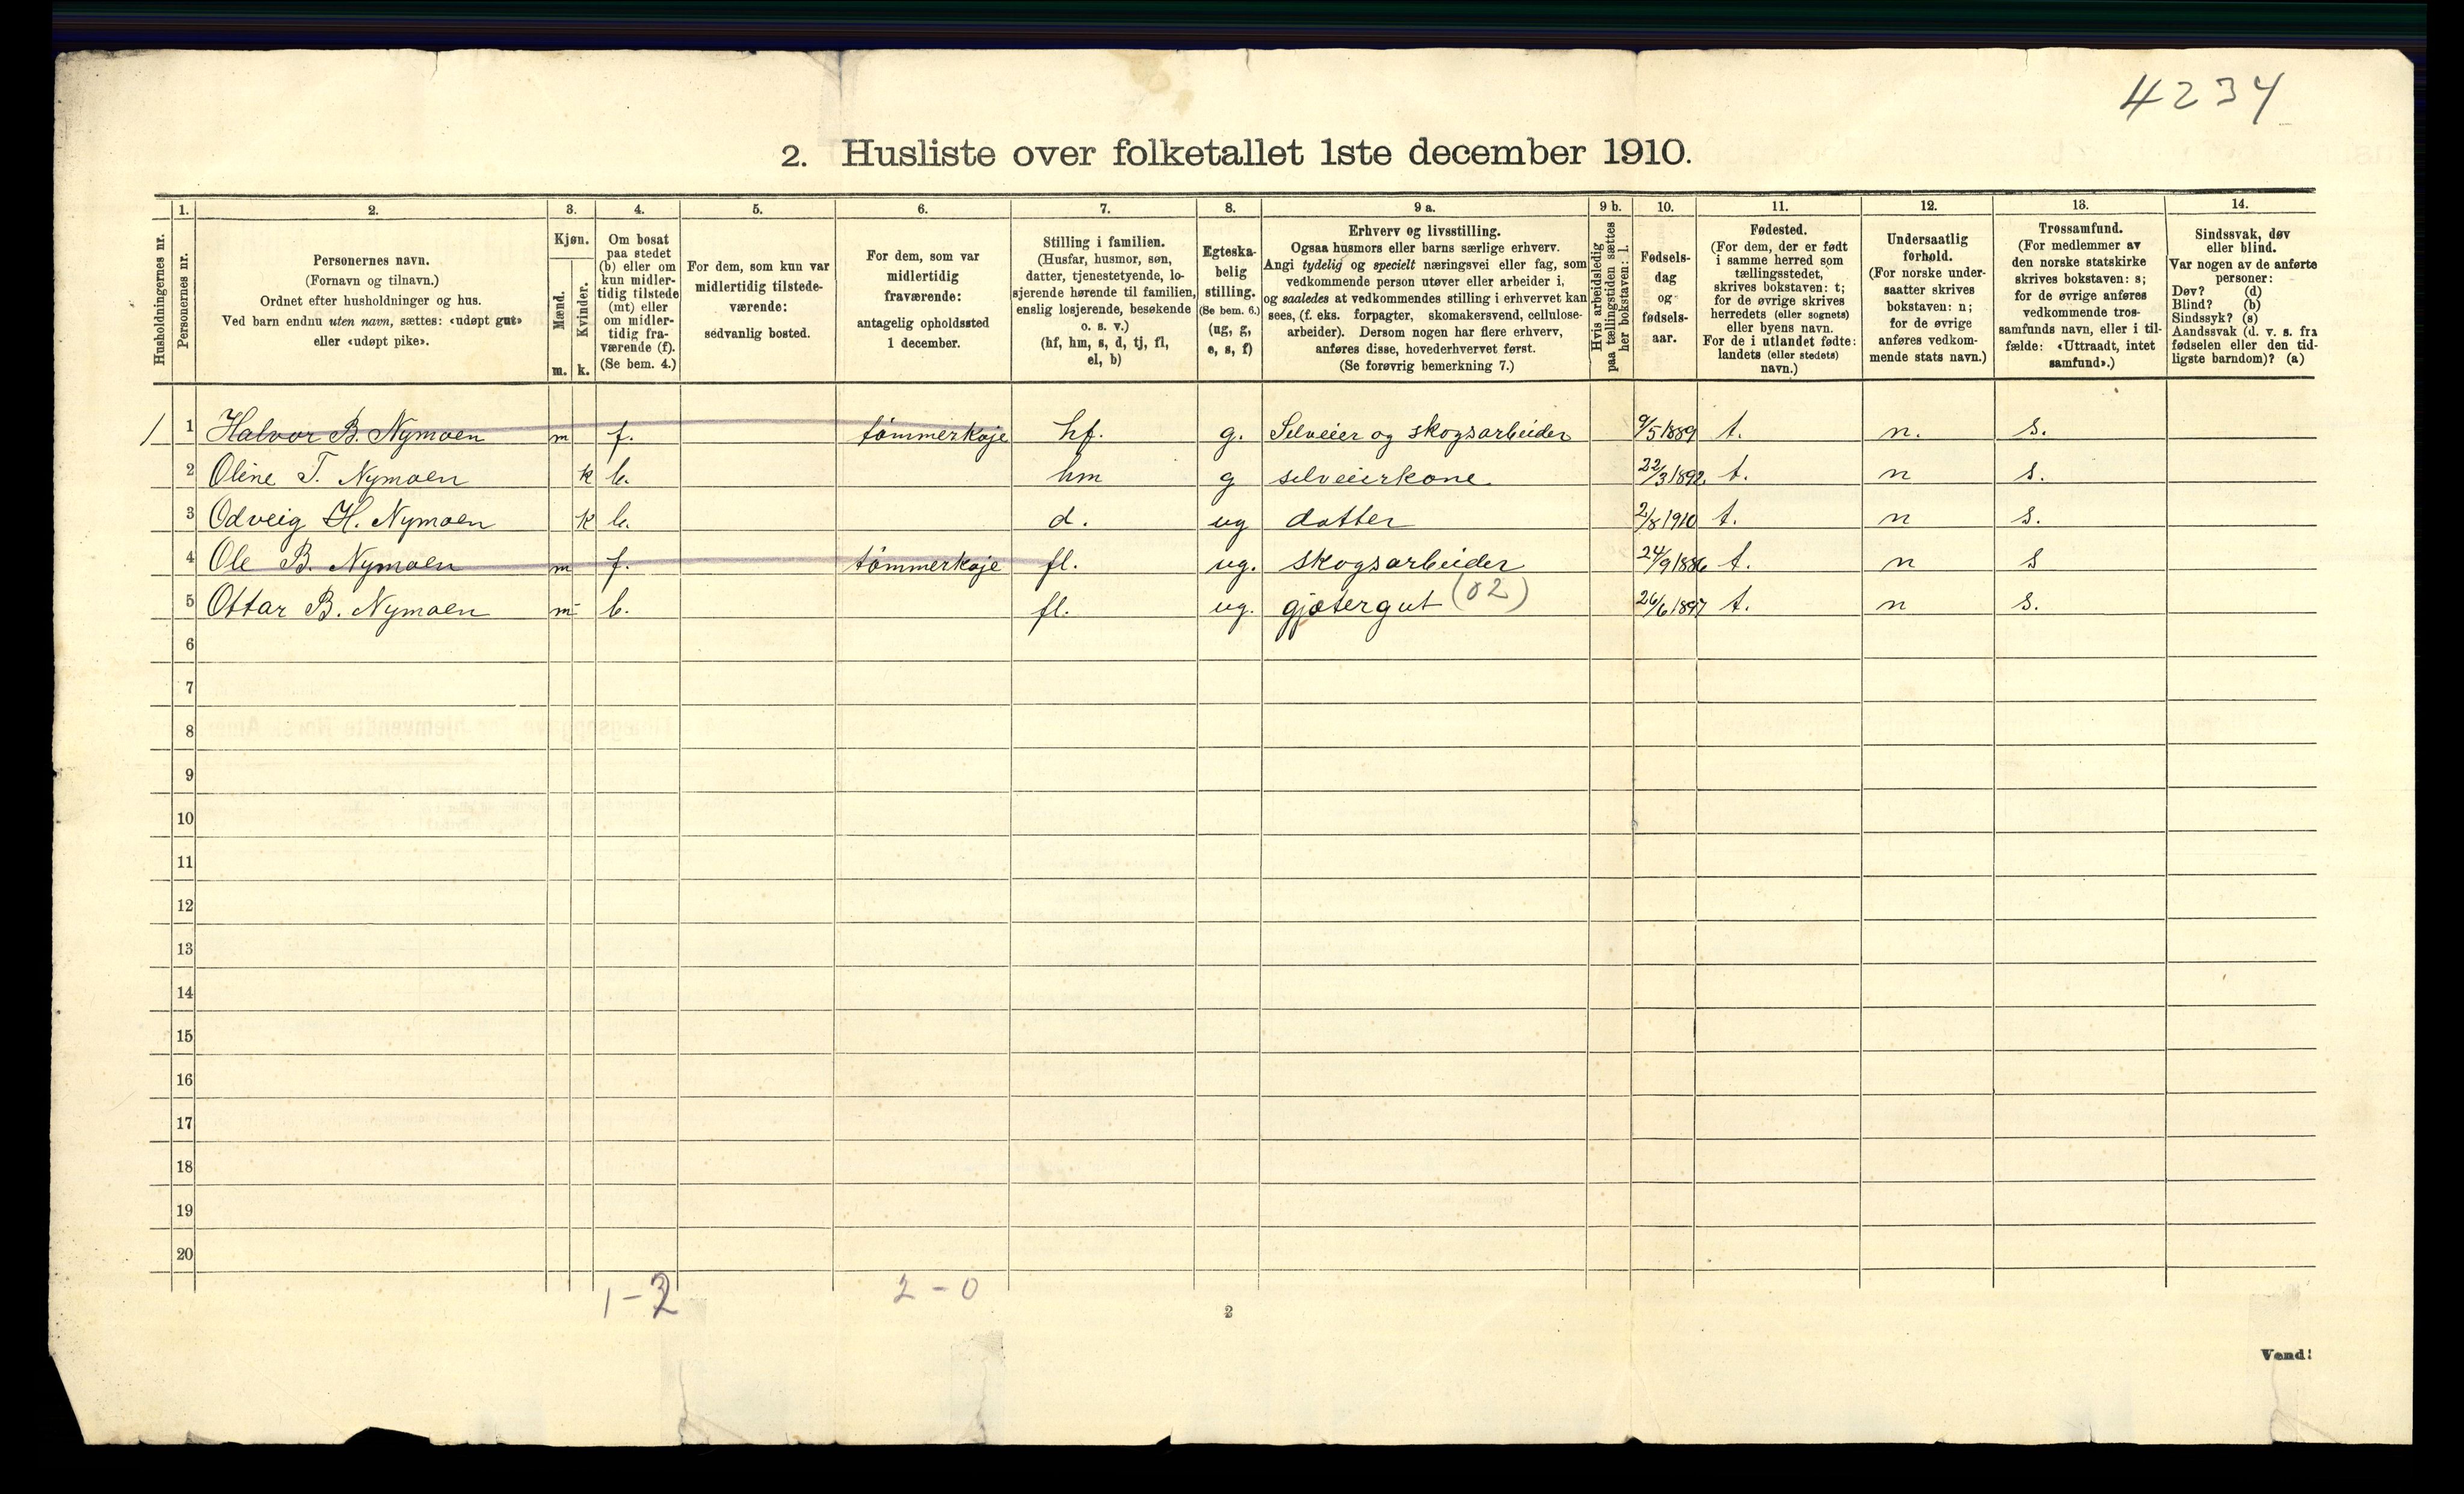 4234
2. Husliste over folketallet 1ste december 1910.
Husholdningernes nr.
1.
Personernes nr.
2.
Personernes navn.
(Fornavn og tilnavn.)
Ordnet efter husholdninger og hus.
Ved barn endnu uten navn, sættes: «udøpt gut»
eller «udøpt pike».
3.
Kjøn.
Mænd.
Kvinder.
m. k.
4.
Om bosat
paa stedet
(b) eller om
kun midler-
tidig tilstede
(mt) eller
om midler-
tidig fra-
værende (f).
(Se bem. 4.)
5.
For dem, som kun var
midlertidig tilstede-
værende:
sedvanlig bosted.
6.
For dem, som var
midlertidig
fraværende:
antagelig opholdssted
1 december.
7.
Stilling i familien.
(Husfar, husmor, søn,
datter, tjenestetyende, lo-
sjerende hørende til familien,
enslig losjerende, besøkende
o. s. v.)
(hf, hm, s, d, tj, fl,
el, b)
8.
Egteska-
belig
stilling.
(Se bem. 6.)
(ug, g,
e, s, f)
9 a.
Erhverv og livsstilling.
Ogsaa husmors eller barns særlige erhverv.
Angi tydelig og specielt næringsvei eller fag, som
vedkommende person utøver eller arbeider i,
og saaledes at vedkommendes stilling i erhvervet kan
sees, (f. eks. forpagter, skomakersvend, cellulose-
arbeider). Dersom nogen har flere erhverv,
anføres disse, hovederhvervet først.
(Se forøvrig bemerkning 7.)
9 b.
Hvis arbeidsledig
paa tællingstiden sættes
her bokstaven: l.
10.
Fødsels-
dag
og
fødsels-
aar.
11.
Fødested.
(For dem, der er født
i samme herred som
tællingsstedet,
skrives bokstaven: t;
for de øvrige skrives
herredets (eller sognets)
eller byens navn.
For de i utlandet fødte:
landets (eller stedets)
navn.)
12.
Undersaatlig
forhold.
(For norske under-
saatter skrives
bokstaven: n;
for de øvrige
anføres vedkom-
mende stats navn.)
13.
Trossamfund.
(For medlemmer av
den norske statskirke
skrives bokstaven: s;
for de øvrige anføres
vedkommende tros-
samfunds navn, eller i til-
fælde: «Uttraadt, intet
samfund».)
14.
Sindssvak, døv
eller blind.
Var nogen av de anførte
personer:
Døv? (d)
Blind? (b)
Sindssyk? (s)
Aandssvak (d. v. s. fra
fødselen eller den tid-
ligste barndom)? (a)
1 Halvor B. Nymoen m f. tømmerkoje hf. g. Selveier og skogsarbeider 9/5 1889 t. n. s.
2 Oline T. Nymoen k b. hm g selveierkone 22/3 1892. t. n s.
3 Odveig H. Nymoen k b. d. ug datter 2/8 1910 t. n s.
4 Ole B. Nymoen m f. tømmerkoje fl. ug. skogsarbeider 24/9 1886 t. n s
5 Ottar B. Nymoen m b. fl. ug. gjætergut (02) 26/6 1897 t. n s.
6
7
8
9
10
11
12
13
14
15
16
17
18
19
20
1-2 2-0
2
Vend!